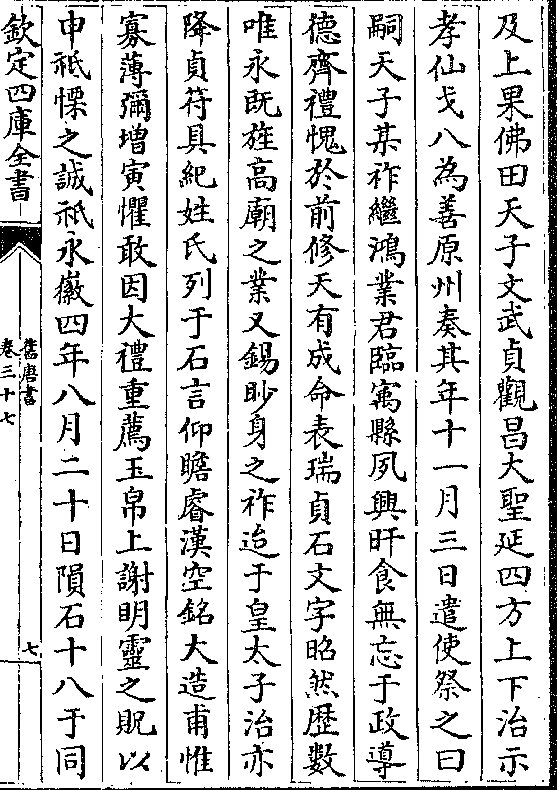 及上果佛田天子文武貞觀昌大聖延四方上下治示
孝仙戈八為善原州奏其年十一月三日遣使祭之曰
嗣天子某祚繼鴻業君臨㝢縣夙興旰食無忘于政導
德齊禮愧於前修天有成命表瑞貞石文字昭然歴數
唯永既旌高廟之業又錫眇身之祚迨于皇太子治亦
降貞符具紀姓氏列于石言仰瞻睿漢空銘大造甫惟
寡薄彌增寅懼敢因大禮重薦玉帛上謝明靈之貺以
申祗慄之誠祗永徽四年八月二十日隕石十八于同
欽定四庫全書
舊唐書
卷三十七
七